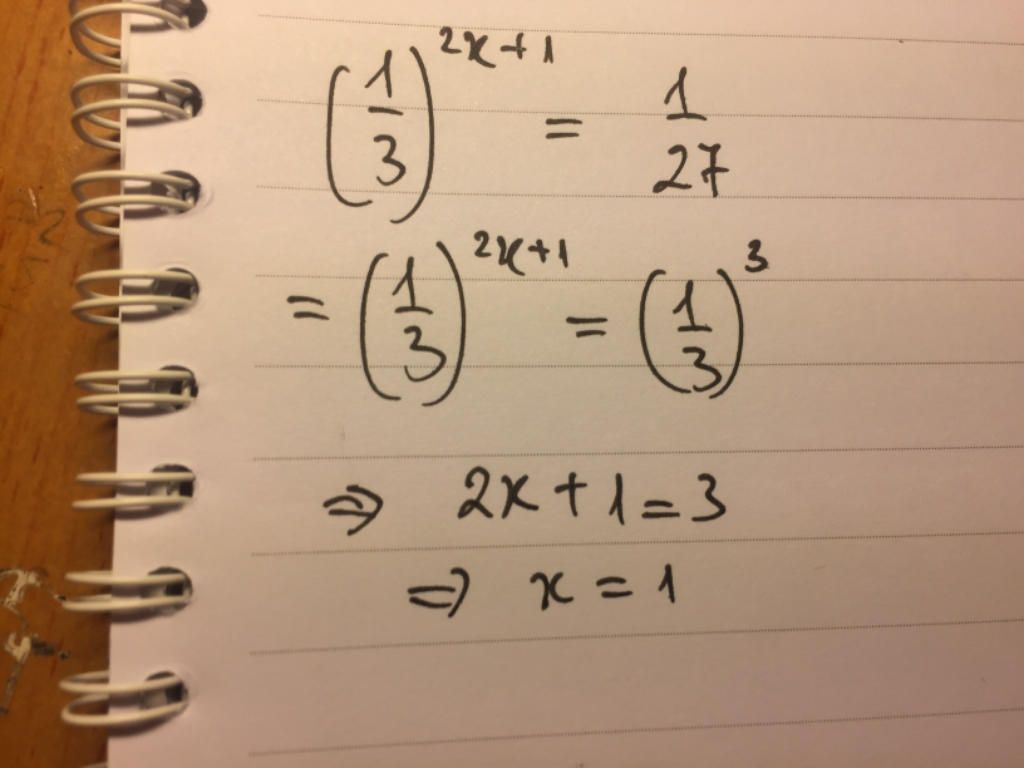 (1/3)^(2x+1) = 1/27
= (1/3)^(2x+1) = (1/3)^3
⇒ 2x+1=3
⇒ x=1